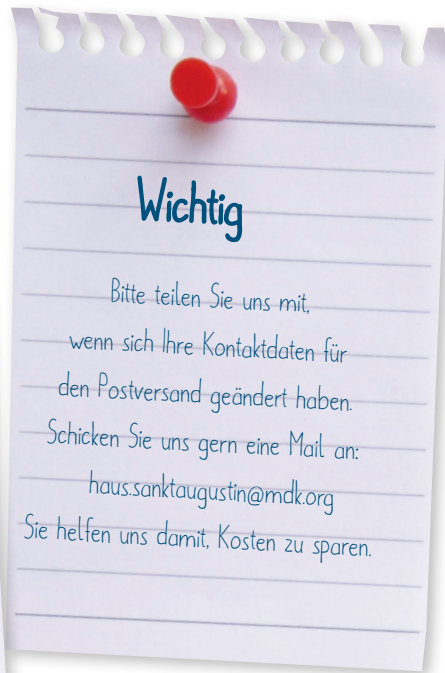 Wichtig
Bitte teilen Sie uns mit,
wenn sich Ihre Kontaktdaten für
den Postversand geändert haben.
Schicken Sie uns gern eine Mail an:
haus.sanktaugustin@mdk.org
Sie helfen uns damit, Kosten zu sparen.